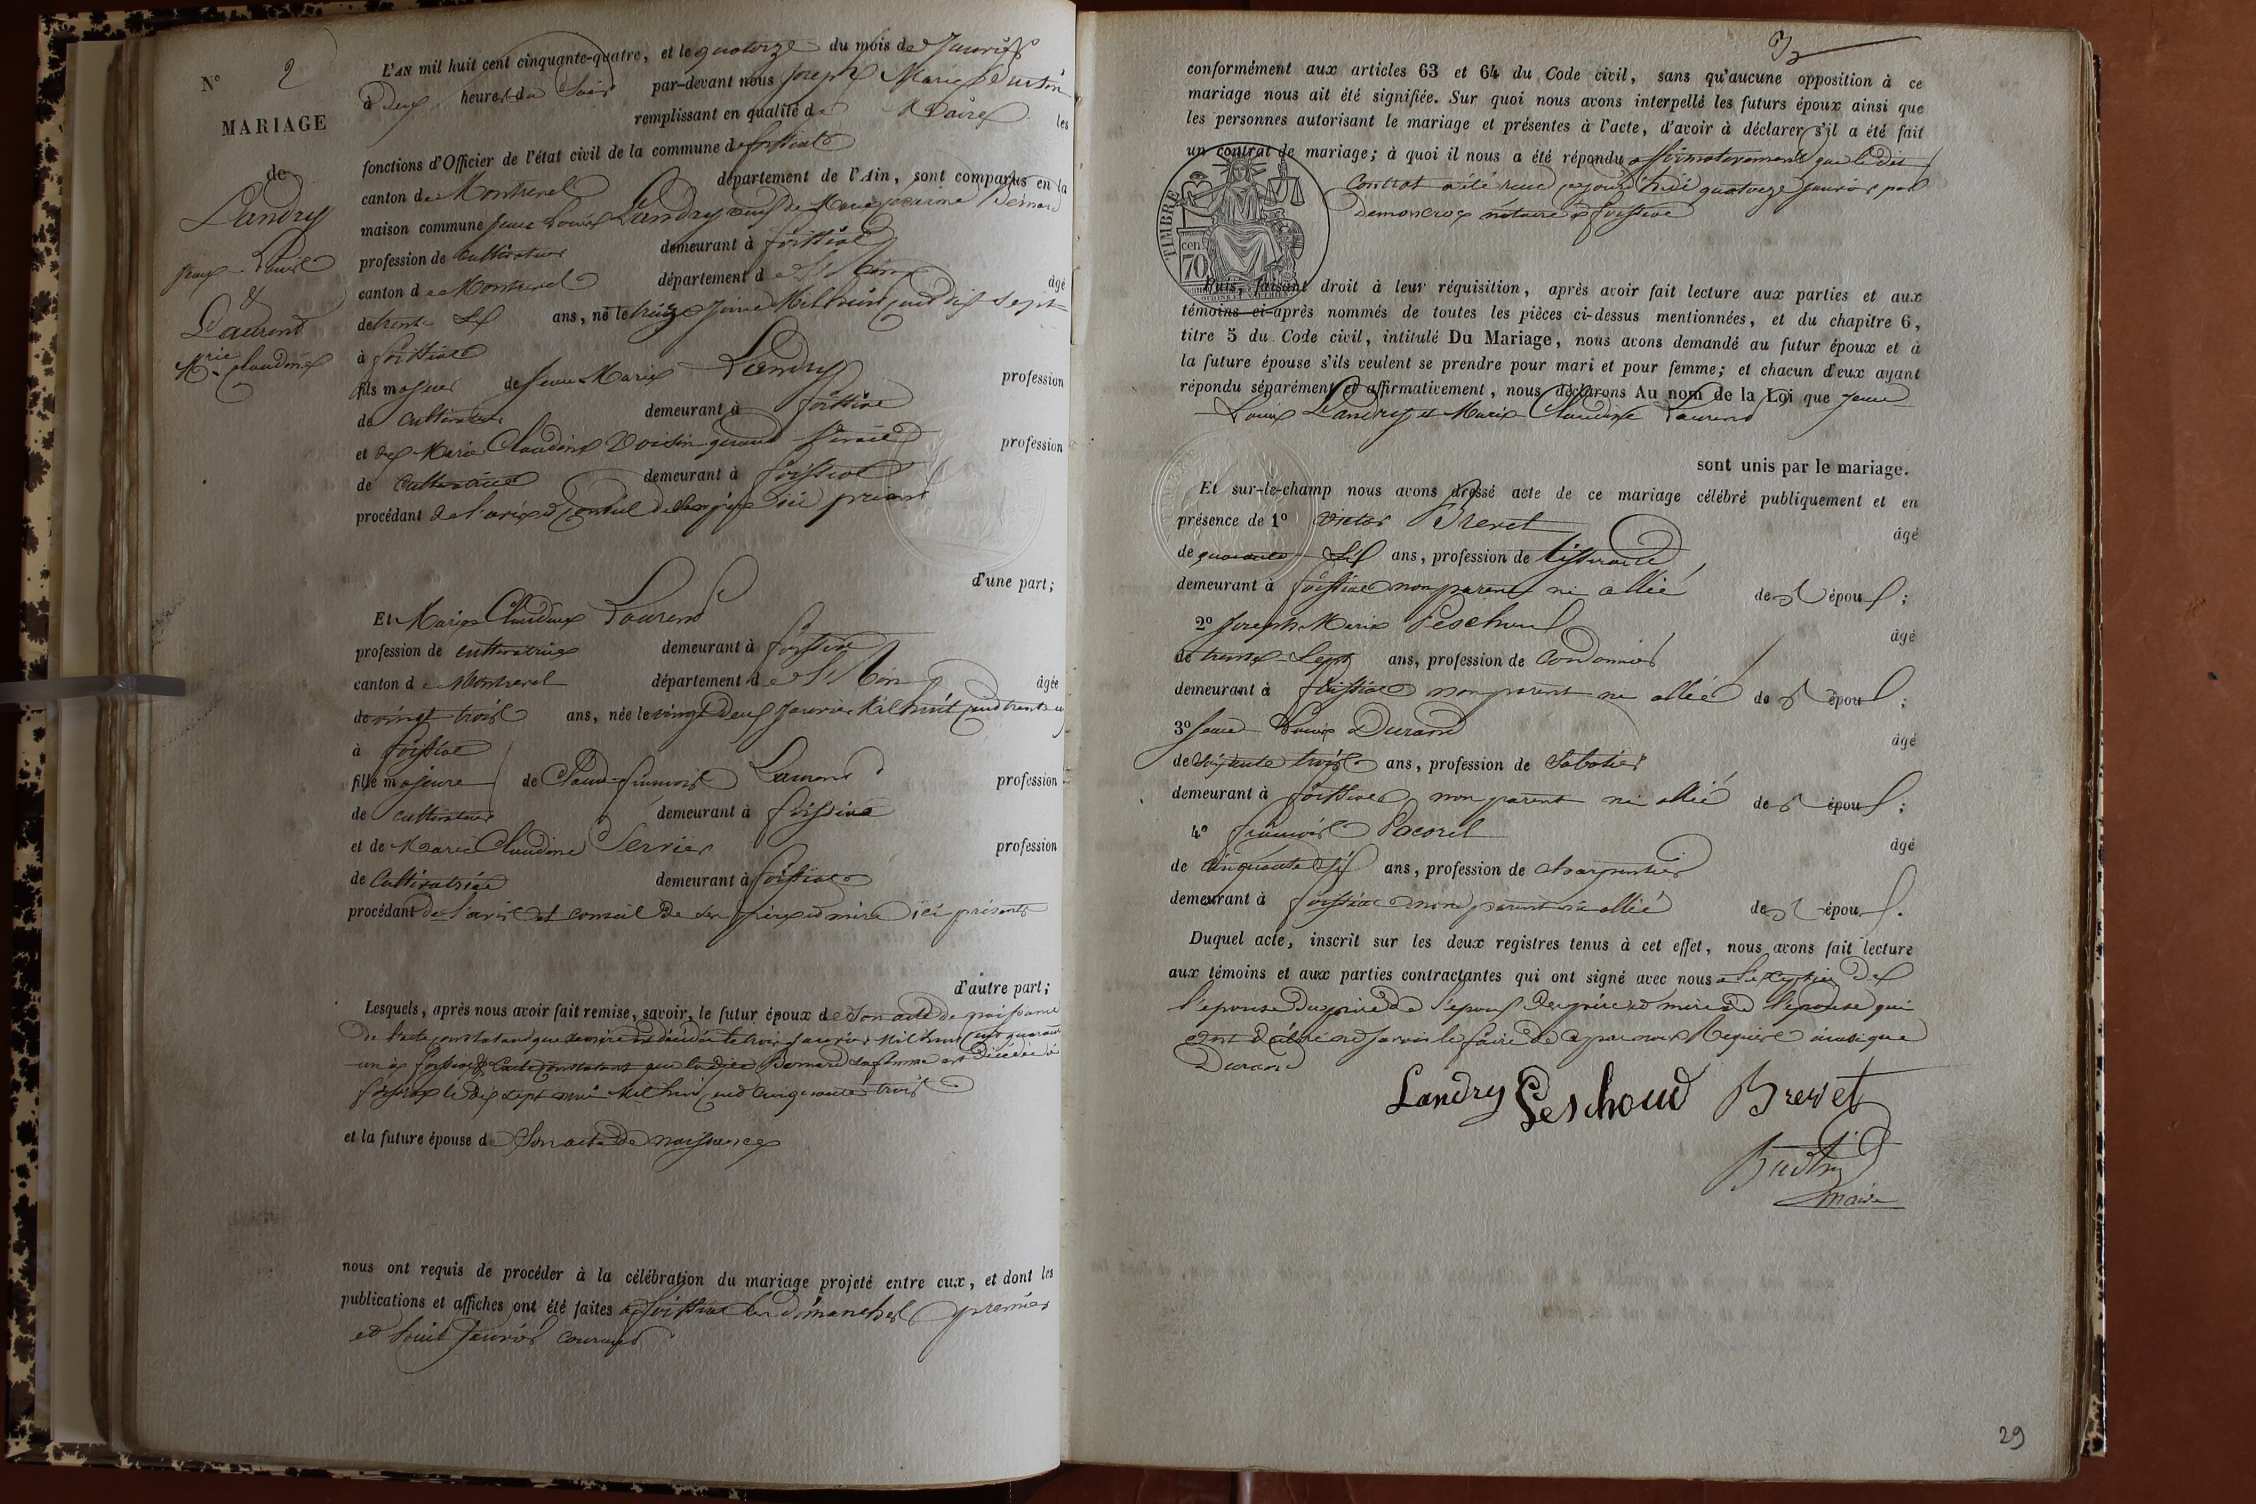 N° 2
MARIAGE
de
Landry
Jean Louis
&
Laurend
Mrie Claudine
L'AN mil huit cent cinquante-quatre, et le quatorze du mois de Janvier
à Deux heures du Soir par-devant nous Joseph Marie
remplissant en qualité de Maire les
fonctions d'Officier de l'état civil de la commune de foissiat
canton de Montrevel département de l'Ain, sont comparus en la
maison commune Jean Louis Landry veuf de Marie Bernard
profession de cultivateur demeurant à foissiat
canton de Montrevel département de l'Ain âgé
de trente six ans, né le treize Mil huit cent dix sept
à foissiat
fils majeur de Jean Marie Landry profession
de cultivateur demeurant à foissiat
et de Marie Claudine Voisin profession
de cultivatrice demeurant à foissiat
procédant de l'avis et Conseil de ici présent
d'une part;
Et Marie Claudine Laurend
profession de cultivatrice demeurant à foissiat
canton de Montrevel département de l'Ain âgée
de vingt trois ans, née le vingt Deux Janvier Mil huit cent trente un
à foissiat
fille majeure de Claude françois Laurend profession
de cultivateur demeurant à foissiat
et de Marie Claudine Servier profession
de Cultivatrice demeurant à foissiat
procédant de l'avis et conseil de ses père et mère ici présents
d'autre part;
Lesquels, après nous avoir fait remise, savoir, le futur époux de Son acte de naissance
de l'acte constatant que sa mère est décédée le trois Janvier Mil huit cent quarante
un à foissiat & l'acte constatant que la dite Bernard sa femme est Décédée à
foissiat le dix sept Mil huit cent cinquante trois
et la future épouse de Son acte de naissance
nous ont requis de procéder à la célébration du mariage projeté entre eux, et dont les
publications et affiches ont été faites à foissiat les dimanches premier
et huit Janvier courant
conformément aux articles 63 et 64 du Code civil, sans qu'aucune opposition à ce
mariage nous ait été signifiée. Sur quoi nous avons interpellé les futurs époux ainsi que
les personnes autorisant le mariage et présentes à l'acte, d'avoir à déclarer s'il a été fait
un contrat de mariage; à quoi il nous a été répondu affirmativement que le dit
Contrat a été reçu ce jourd'hui quatorze Janvier par
notaire à foissiat
TIMBRE
70 cent
Puis, faisant droit à leur réquisition, après avoir fait lecture aux parties et aux
témoins ci-après nommés de toutes les pièces ci-dessus mentionnées, et du chapitre 6,
titre 5 du Code civil, intitulé Du Mariage, nous avons demandé au futur époux et à
la future épouse s'ils veulent se prendre pour mari et pour femme; et chacun d'eux ayant
répondu séparément et affirmativement, nous déclarons Au nom de la Loi que Jean
Louis Landry et Marie Claudine Laurend
sont unis par le mariage.
Et sur-le-champ nous avons dressé acte de ce mariage célébré publiquement et en
présence de 1° Victor Brevet âgé
de quarante Six ans, profession de tisserand
demeurant à foissiat non parent ni allié de l'époux;
2° Joseph Marie Peschoud âgé
de trente Sept ans, profession de Cordonnier
demeurant à foissiat non parent ni allié de l'époux;
3° Jean Louis Durand âgé
de soixante trois ans, profession de Sabotier
demeurant à foissiat non parent ni allié de l'époux;
4° françois Pacoret âgé
de Cinquante Six ans, profession de charpentier
demeurant à foissiat non parent ni allié de l'époux.
Duquel acte, inscrit sur les deux registres tenus à cet effet, nous avons fait lecture
aux témoins et aux parties contractantes qui ont signé avec nous à l'exception de
l'épouse du père de l'époux Des père et mère de l'épouse qui
ont déclaré ne savoir le faire de ce par nous Requis ainsi que
Durand
Landry Peschoud Brevet
maire
29